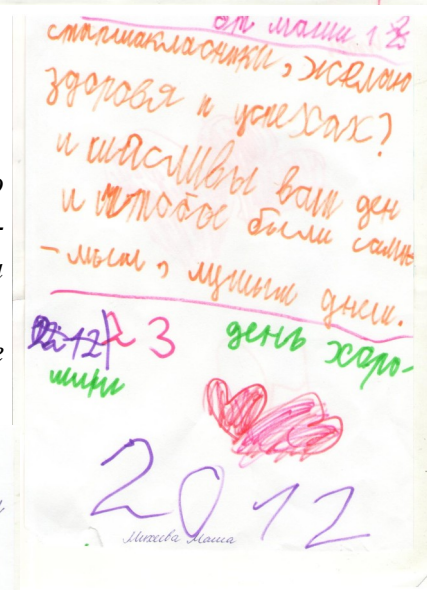 от маши 1 В
старшакласники, желаю
здоровя и успехах?
и щасливы ваш ден
и чтобос были самы
- мым, лучшым днем.
2012 2 3 день харо-
мири
2012
Михеева Маша